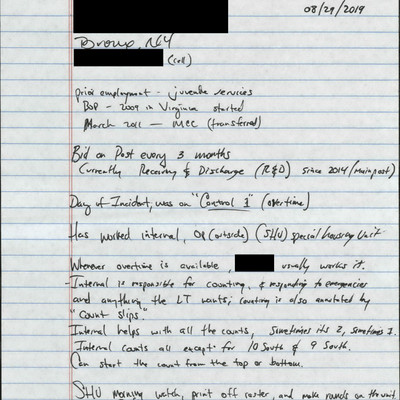 08/29/2019
Bronx, NY
(cell)
prior employment - juvenile services
BOP - 2009 in Virginia started
March 2011 — MCC (transferred)
Bid on Post every 3 months
Currently Receiving & Discharge (R&D) since 2014 (main post)
Day of Incident, was on "Control 1" (overtime)
Has worked internal, OP (outside) (SHU) special housing Unit
Wherever overtime is available, usually works it.
- Internal is responsible for counting, & responding to emergencies
and anything the LT wants; counting is also annotated by
"count slips."
Internal helps with all the counts, sometimes its 2, sometimes 1.
Internal counts all except for 10 South & 9 South.
Can start the count from the top or bottom.
SHU Morning watch, print off roster, and make rounds on the unit